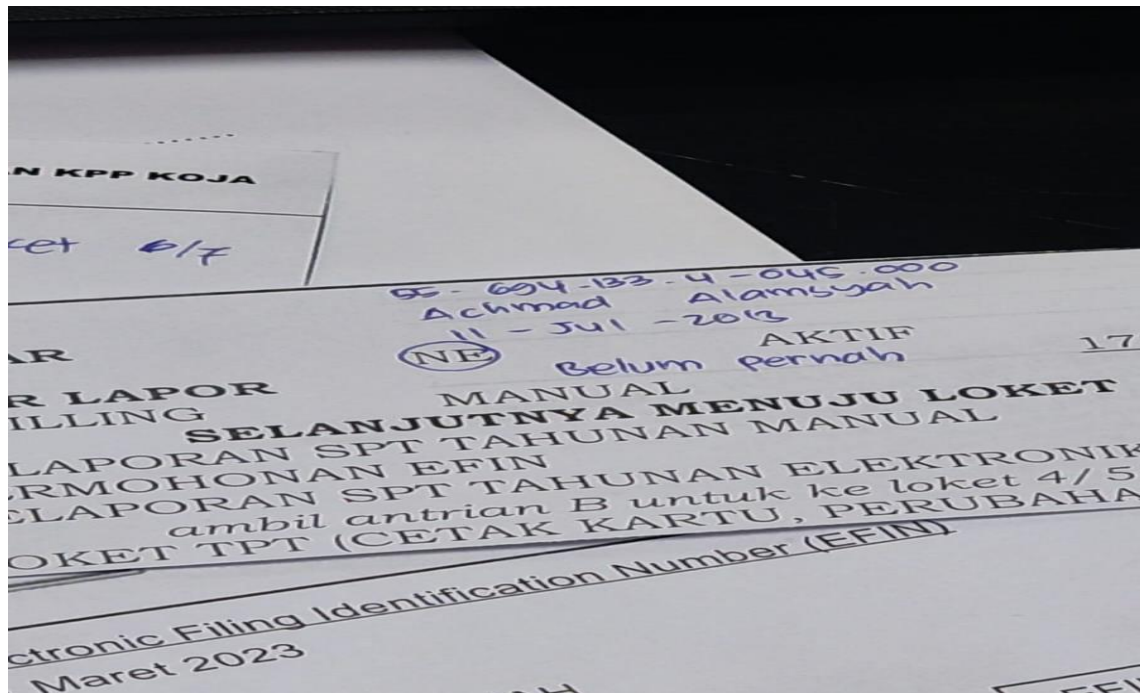 N KPP KOJA
ket 6/7
55-694-133.4-045.000
Achmad Alamsyah
11-Jul-2013
AR
NE
AKTIF
17
Belum pernah
R LAPOR
MANUAL
ILLING
SELANJUTNYA MENUJU LOKET
LAPORAN SPT TAHUNAN MANUAL
ERMOHONAN EFIN
ELAPORAN SPT TAHUNAN ELEKTRONIK
ambil antrian B untuk ke loket 4/5
OKET TPT (CETAK KARTU, PERUBAHA
ctronic Filing Identification Number (EFIN)
Maret 2023